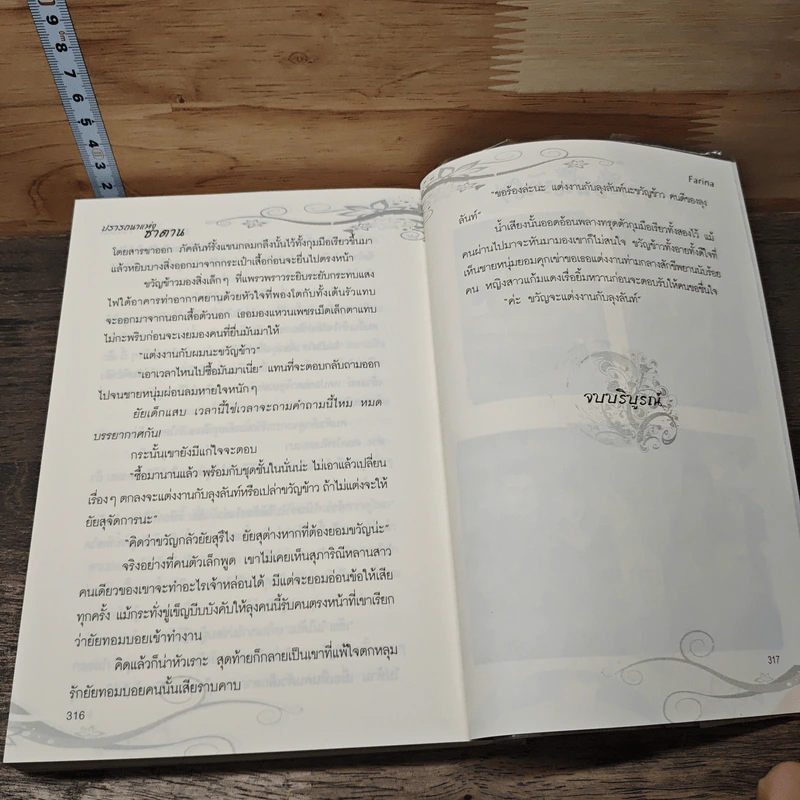 9
8
7
6
5
4
3
2
ปรารถนาแห่ง
ซาตาน
โดยสารขาออก ภัคลันท์รั้งแขนกลมกลึงนั้นไว้ทั้งกุมมือเรียวขึ้นมา
แล้วหยิบบางสิ่งออกมาจากกระเป๋าเสื้อก่อนจะยื่นไปตรงหน้า
ขวัญข้าวมองสิ่งเล็กๆ ที่แพรวพราวระยิบระยับกระทบแสง
ไฟใต้อาคารท่าอากาศยานด้วยหัวใจที่พองโตกับทั้งเต้นรัวแทบ
จะออกมาจากนอกเสื้อตัวนอก เธอมองแหวนเพชรเม็ดเล็กตาแทบ
ไม่กะพริบก่อนจะเงยมองคนที่ยื่นมันมาให้
“แต่งงานกับผมนะขวัญข้าว”
“เอาเวลาไหนไปซื้อมันมาเนี่ย” แทนที่จะตอบกลับถามออก
ไปจนชายหนุ่มผ่อนลมหายใจหนักๆ
ยัยเด็กแสบ เวลานี้ใช่เวลาจะถามคำถามนี้ไหม หมด
บรรยากาศกัน!
กระนั้นเขายังมีแก่ใจจะตอบ
“ซื้อมานานแล้ว พร้อมกับชุดชั้นในนั่นน่ะ ไม่เอาแล้วเปลี่ยน
เรื่องๆ ตกลงจะแต่งงานกับลุงลันท์หรือเปล่าขวัญข้าว ถ้าไม่แต่งจะให้
ยัยสุจัดการนะ”
“คิดว่าขวัญกลัวยัยสุรึไง ยัยสุต่างหากที่ต้องยอมขวัญน่ะ”
จริงอย่างที่คนตัวเล็กพูด เขาไม่เคยเห็นสุภาริณีหลานสาว
คนเดียวของเขาจะทำอะไรเจ้าหล่อนได้ มีแต่จะยอมอ่อนข้อให้เสีย
ทุกครั้ง แม้กระทั่งขู่เข็ญบีบบังคับให้ลุงคนนี้รับคนตรงหน้าที่เขาเรียก
ว่ายัยทอมบอยเข้าทำงาน
คิดแล้วก็น่าหัวเราะ สุดท้ายก็กลายเป็นเขาที่แพ้ใจตกหลุม
รักยัยทอมบอยคนนั้นเสียราบคาบ
316
Farina
“ขอร้องล่ะนะ แต่งงานกับลุงลันท์นะขวัญข้าว คนดีของลุง
ลันท์”
น้ำเสียงนั้นออดอ้อนพลางทรุดตัวกุมมือเรียวทั้งสองไว้ แม้
คนผ่านไปมาจะหันมามองเขาก็ไม่สนใจ ขวัญข้าวทั้งอายทั้งดีใจที่
เห็นชายหนุ่มยอมคุกเข่าขอเธอแต่งงานท่ามกลางสักขีพยานนับร้อย
คน หญิงสาวแก้มแดงเรื่อยิ้มหวานก่อนจะตอบรับให้คนขอชื่นใจ
“ค่ะ ขวัญจะแต่งงานกับลุงลันท์”
จบบริบูรณ์
317